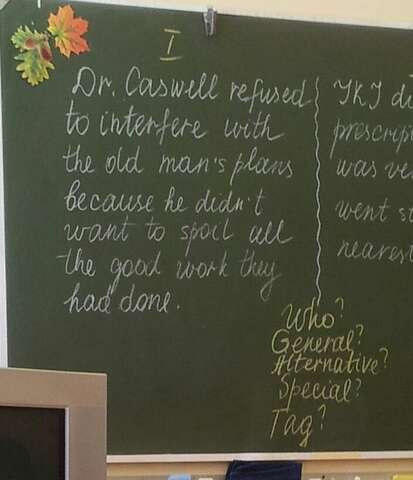 I
Dr. Caswell refused
to interfere with
the old man's plans
because he didn't
want to spoil all
the good work they
had done.
was
went
nearest
Who?
General?
Alternative?
Special?
Tag?